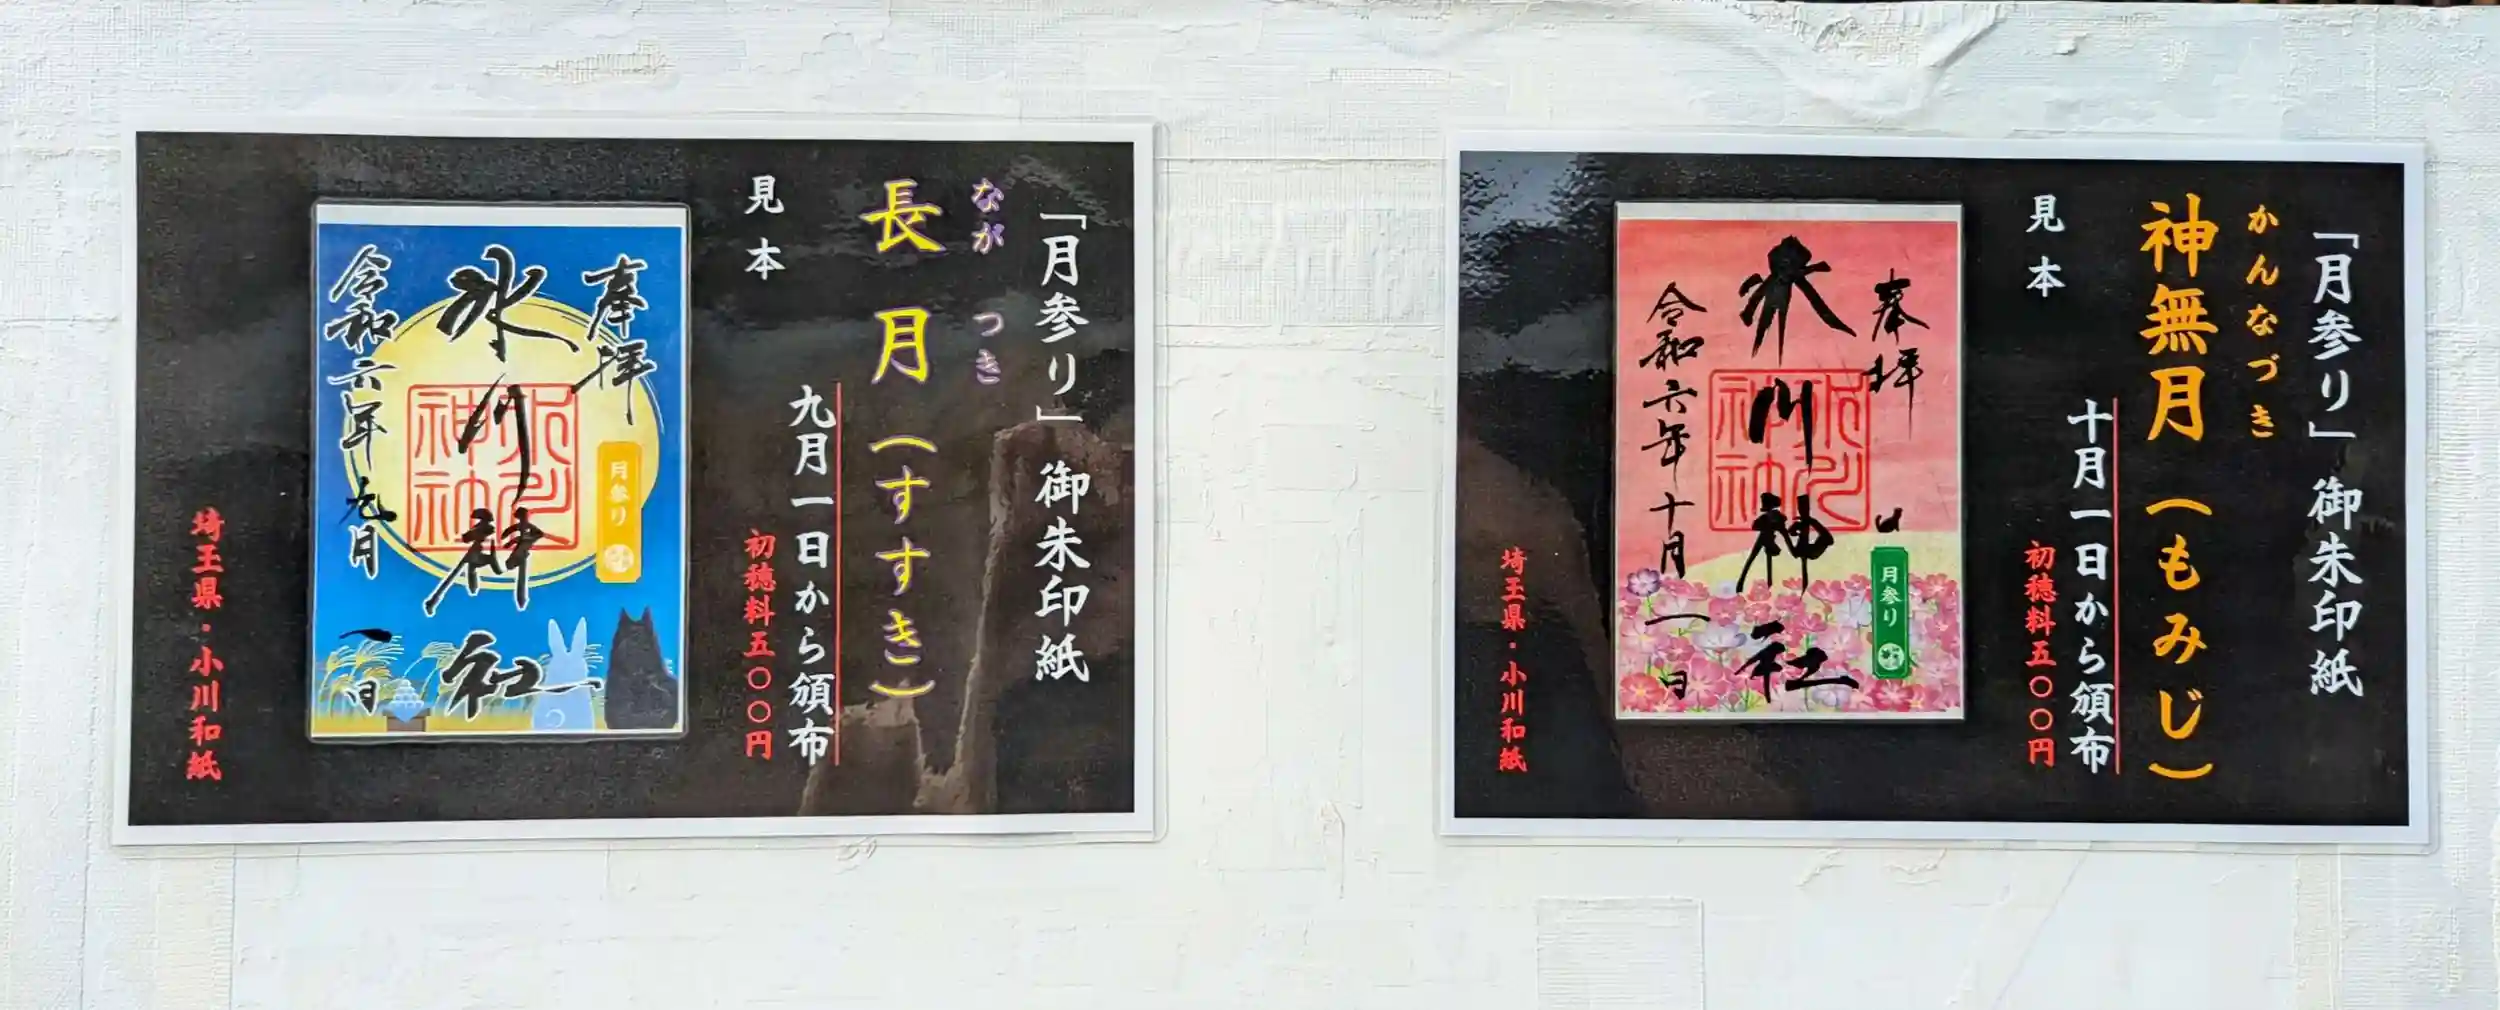 「月参り」御朱印紙
なが つき
長月(すすき)
九月一日から頒布
見本
初穂料五〇〇円
奉拝
月参り
氷川神社
氷川神社
令和六年九月一日
埼玉県・小川和紙
「月参り」御朱印紙
かんなづき
神無月(もみじ)
十月一日から頒布
見本
初穂料五〇〇円
奉拝
月参り
氷川神社
氷川神社
令和六年十月一日
埼玉県・小川和紙